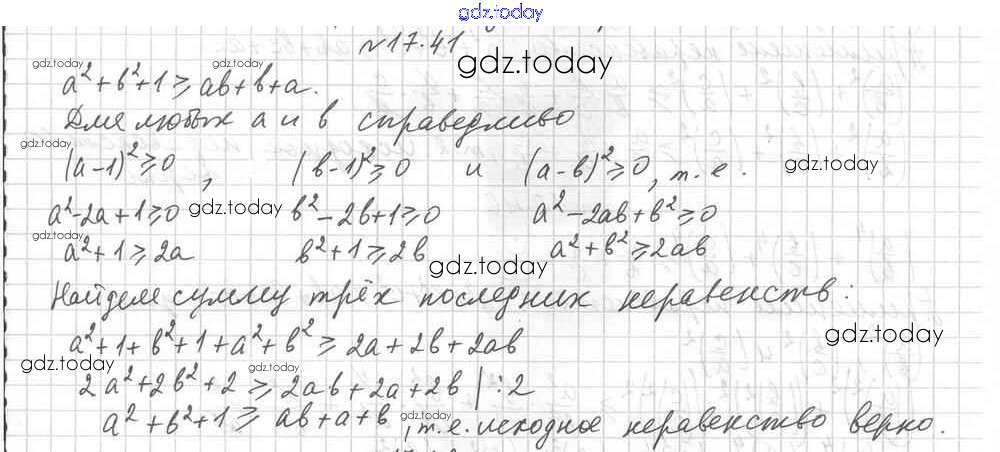 gdz.today
№17.41
gdz.today gdz.today gdz.today
a²+b²+1≥ab+b+a.
Для любых a и b справедливо
gdz.today
(a-1)²≥0, (b-1)²≥0 и (a-b)²≥0, т.е. gdz.today
a²-2a+1≥0 gdz.today b²-2b+1≥0 a²-2ab+b²≥0
gdz.today
a²+1≥2a b²+1≥2b a²+b²≥2ab
gdz.today
Найдем сумму трёх последних неравенств:
gdz.today
a²+1+b²+1+a²+b²≥2a+2b+2ab
gdz.today gdz.today
2a²+2b²+2≥2ab+2a+2b |:2
a²+b²+1≥ab+a+b gdz.today, т.е. исходное неравенство верно.